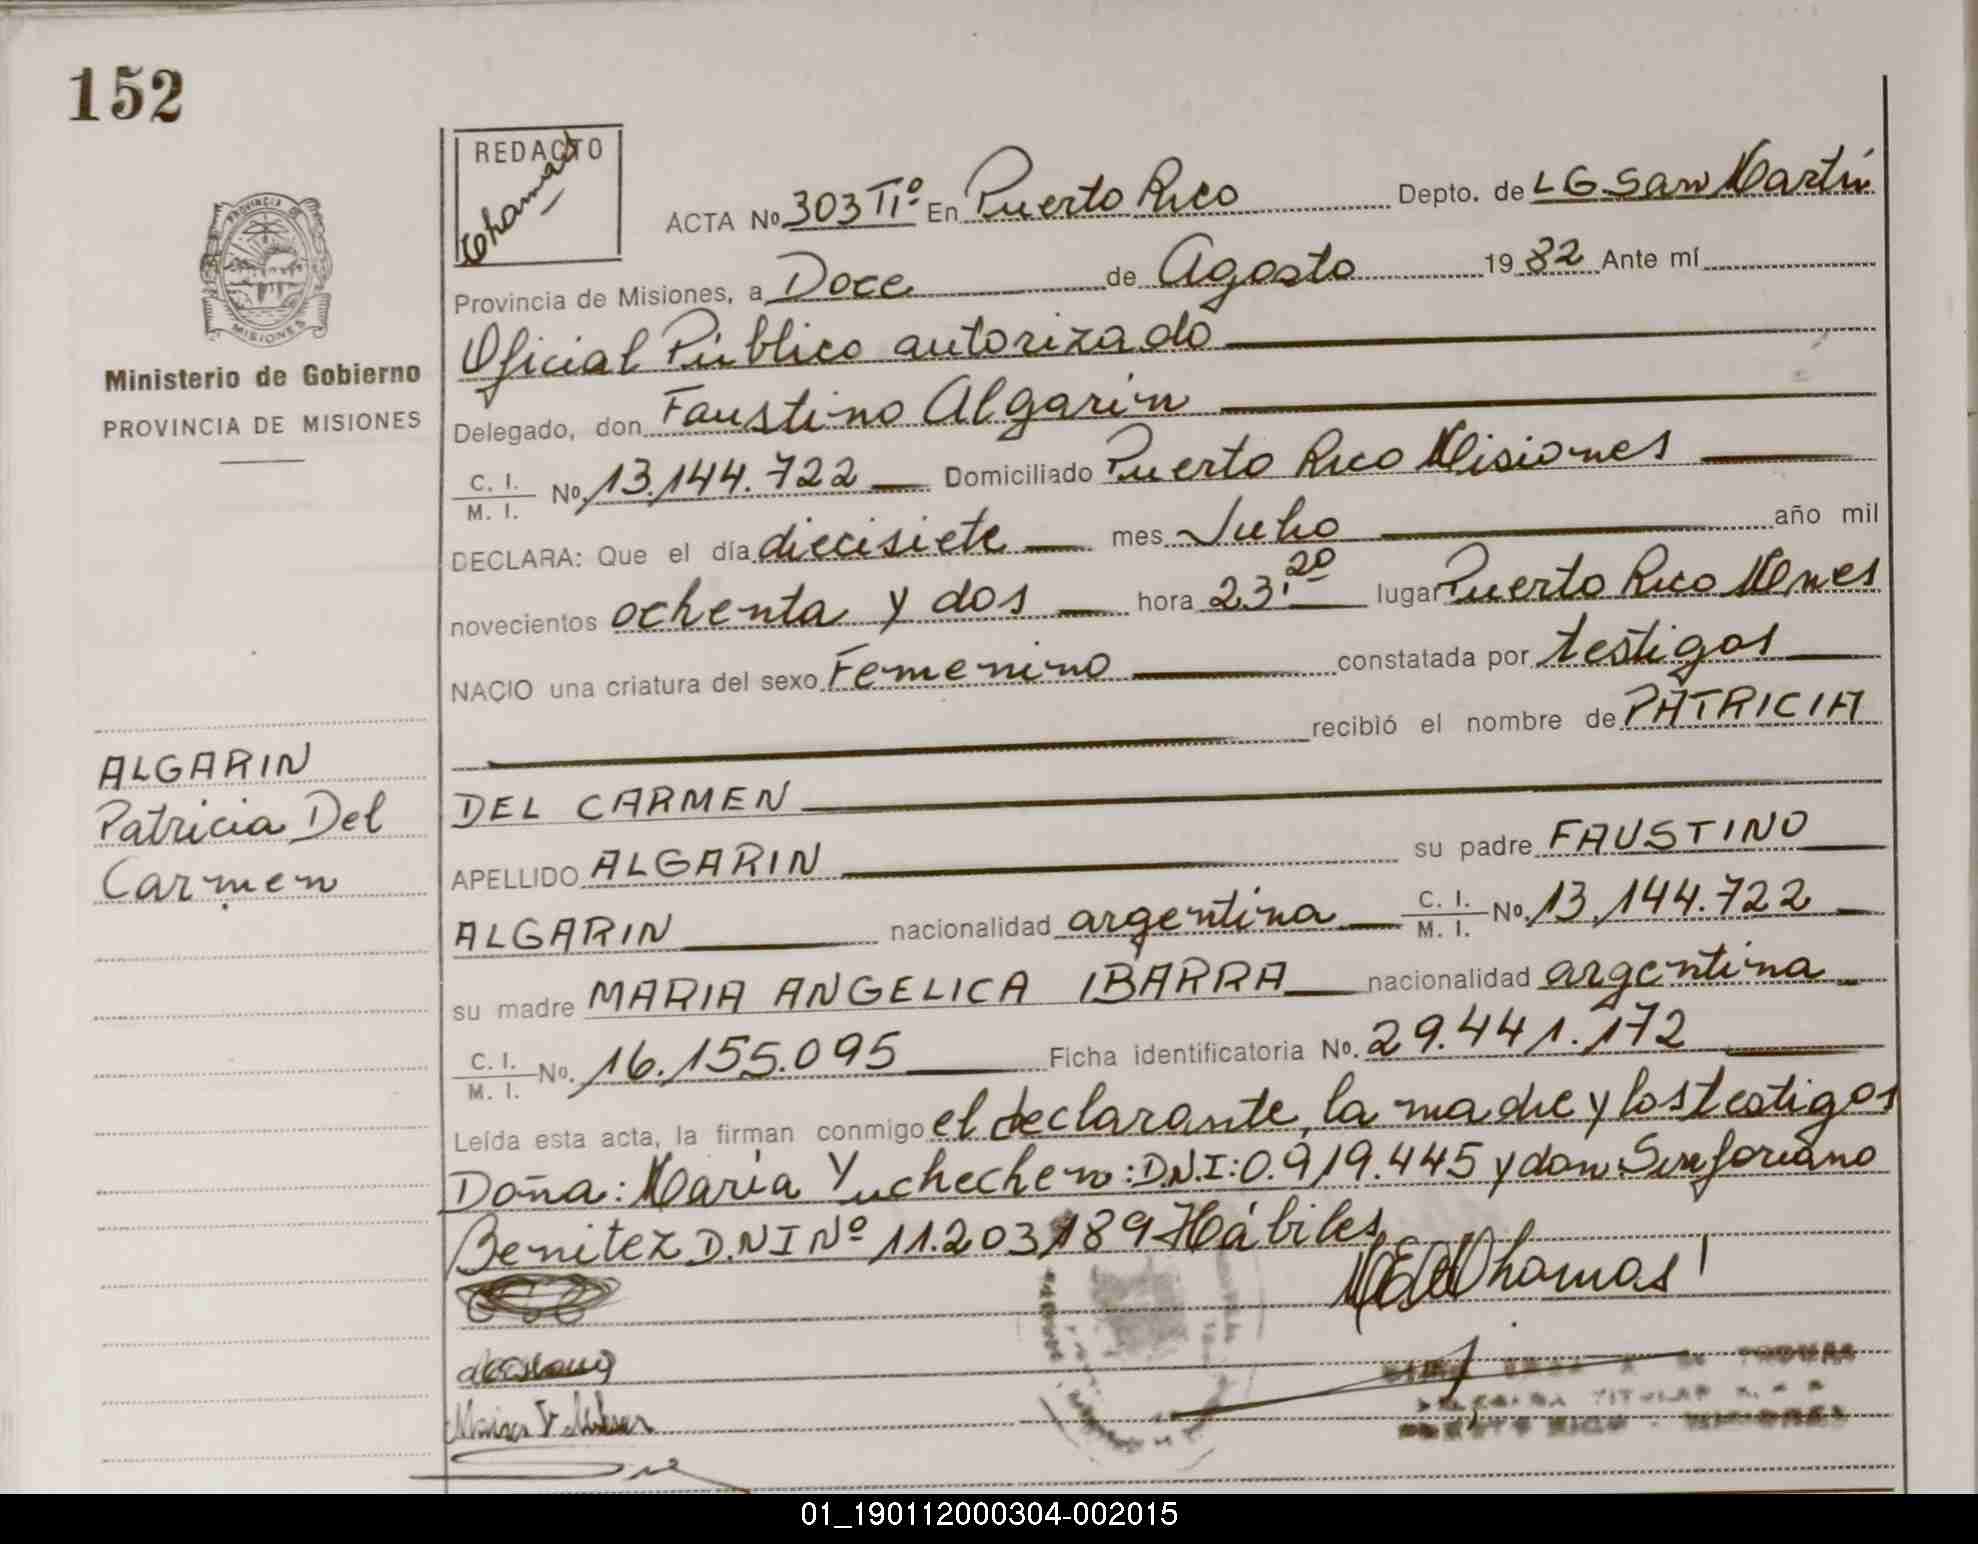 152
REDACTO
ACTA No 303 TIº En Puerto Rico Depto. de LG San Martín
Provincia de Misiones, a Doce de Agosto 19 82 Ante mí
Oficial Público autorizado
Delegado, don Faustino Algarin
C. I. / M. I. No. 13.144.722 Domiciliado Puerto Rico Misiones
DECLARA: Que el día diecisiete mes Julio año mil
novecientos ochenta y dos hora 23.20 lugar Puerto Rico Mnes
NACIO una criatura del sexo Femenino constatada por testigos
recibió el nombre de PATRICIA
DEL CARMEN
APELLIDO ALGARIN su padre FAUSTINO
ALGARIN nacionalidad argentina C. I. / M. I. No. 13.144.722
su madre MARIA ANGELICA IBARRA nacionalidad argentina
C. I. / M. I. No. 16.155.095 Ficha identificatoria No. 29.441.172
Leída esta acta, la firman conmigo el declarante, la madre y los testigos
Doña: María Yuchechen: D.N.I: 0.919.445 y don Sinforiano
Benitez D.N.I Nº 11.203.189 Hábiles
PROVINCIA DE
MISIONES
Ministerio de Gobierno
PROVINCIA DE MISIONES
ALGARIN
Patricia Del
Carmen
01_190112000304-002015